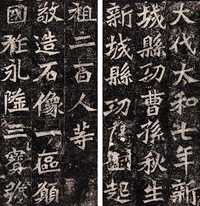 大代大和七年新
城縣功曹孫秋生
新城縣功曹劉起
祖二百人等
敬造石像一區願
國祚永隆三寶彌